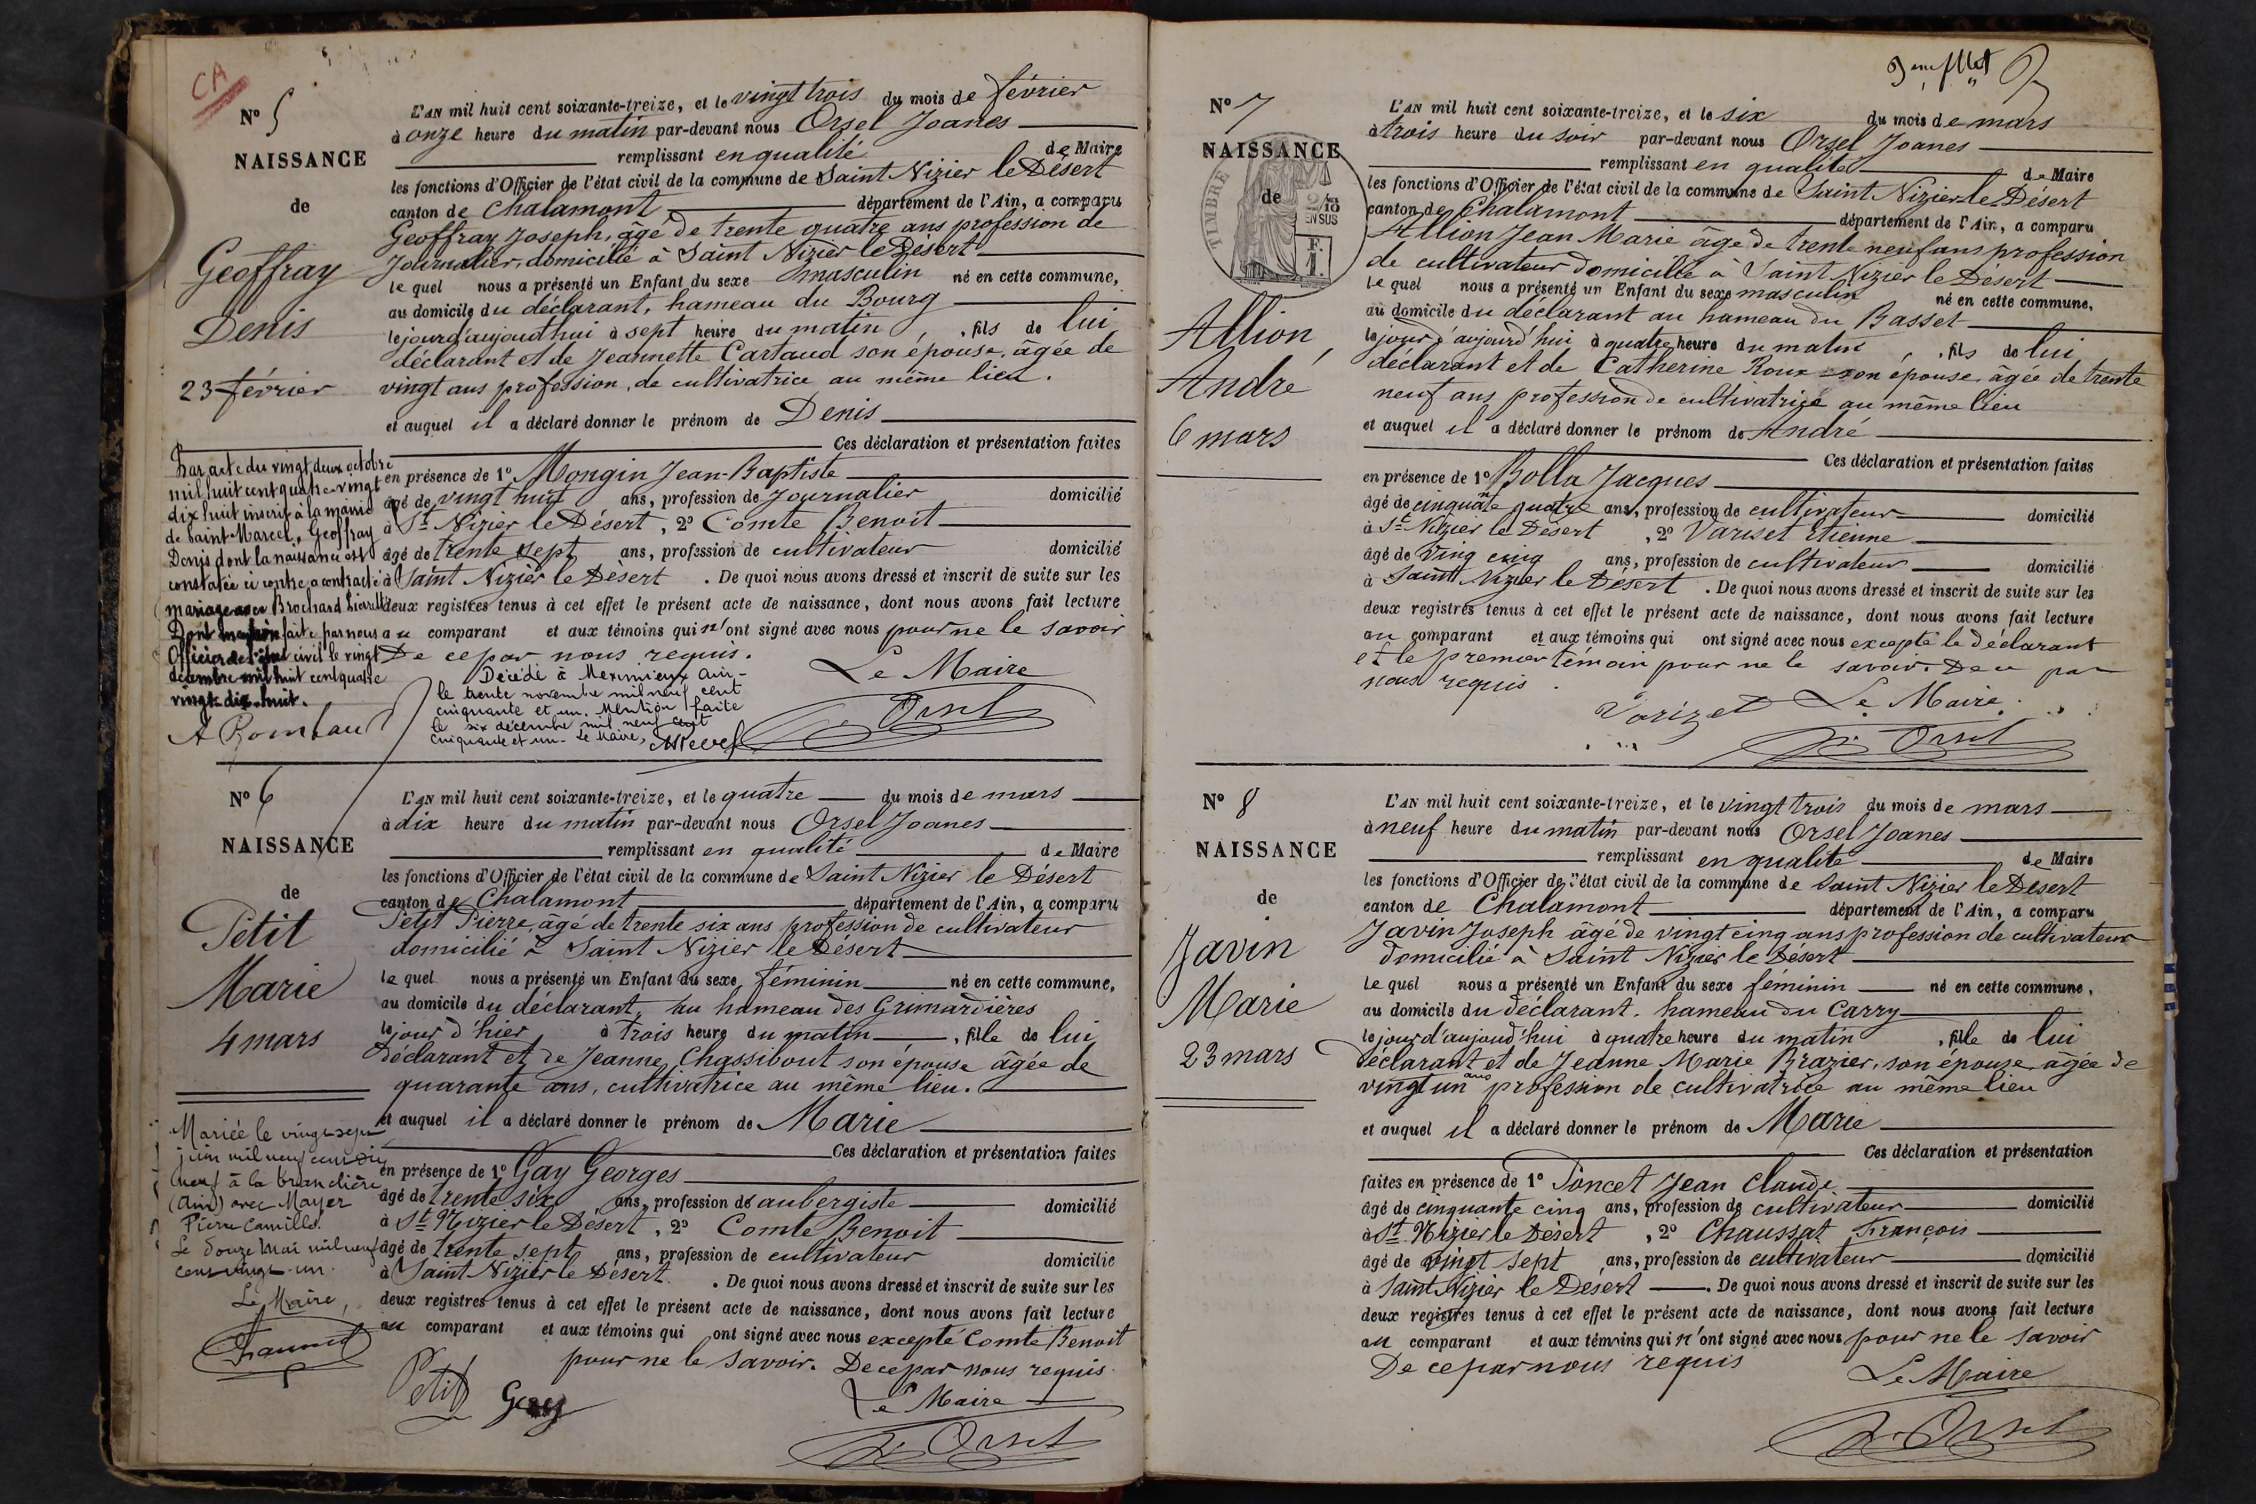 CA
N° 5
NAISSANCE
de
Geoffray
Denis
23 février
L'AN mil huit cent soixante-treize, et le vingt trois du mois de février
à onze heure du matin par-devant nous Orsel Joanes
remplissant en qualité de Maire
les fonctions d'Officier de l'état civil de la commune de Saint Nizier le Désert
canton de Chalamont département de l'Ain, a comparu
Geoffray Joseph, agé de trente quatre ans profession de
Journalier, domicilié à Saint Nizier le Désert
le quel nous a présenté un Enfant du sexe masculin né en cette commune,
au domicile du déclarant, hameau du Bourg
le jour d'aujourd'hui à sept heure du matin, fils de lui
déclarant et de Jeannette Cartaud son épouse, âgée de
vingt ans profession, de cultivatrice au même lieu.
et auquel il a déclaré donner le prénom de Denis
Ces déclaration et présentation faites
en présence de 1° Mongin Jean-Baptiste
âgé de vingt huit ans, profession de Journalier domicilié
à St Nizier le Désert, 2° Comte Benoit
âgé de trente sept ans, profession de cultivateur domicilié
à Saint Nizier le Désert. De quoi nous avons dressé et inscrit de suite sur les
deux registres tenus à cet effet le présent acte de naissance, dont nous avons fait lecture
au comparant et aux témoins qui n'ont signé avec nous pour ne le savoir
De ce par nous requis.
Le Maire
Orsel
Par acte du vingt deux octobre
mil huit cent quatre-vingt
dix huit inscrit à la mairie
de Saint Marcel, Geoffray
Denis dont la naissance est
constatée ci contre a contracté
mariage avec Brochard
Dont mention faite par nous
Officier de l'état civil le vingt
décembre mil huit cent quatre
vingt-dix-huit.
Décédé à Meximieux Ain-
le trente novembre mil neuf cent
cinquante et un. Mention faite
le six décembre mil neuf cent
cinquante et un - Le Maire,
N° 6
NAISSANCE
de
Petit
Marie
4 mars
L'AN mil huit cent soixante-treize, et le quatre du mois de mars
à dix heure du matin par-devant nous Orsel Joanes
remplissant en qualité de Maire
les fonctions d'Officier de l'état civil de la commune de Saint Nizier le Désert
canton de Chalamont département de l'Ain, a comparu
Petit Pierre, âgé de trente six ans profession de cultivateur
domicilié à Saint Nizier le Désert
le quel nous a présenté un Enfant du sexe féminin né en cette commune,
au domicile du déclarant, au hameau des Grimardières
le jour d'hier à trois heure du matin, fille de lui
déclarant et de Jeanne Chassibout son épouse âgée de
quarante ans, cultivatrice au même lieu.
et auquel il a déclaré donner le prénom de Marie
Ces déclaration et présentation faites
en présence de 1° Gay Georges
âgé de trente six ans, profession de aubergiste domicilié
à St Nizier le Désert, 2° Comte Benoit
âgé de trente sept ans, profession de cultivateur domicilié
à Saint Nizier le Désert. De quoi nous avons dressé et inscrit de suite sur les
deux registres tenus à cet effet le présent acte de naissance, dont nous avons fait lecture
au comparant et aux témoins qui ont signé avec nous excepté Comte Benoit
pour ne le savoir. De ce par nous requis.
Petit Gay
Le Maire
J. Orsel
Mariée le vingt-sept
juin mil neuf cent dix
neuf à la tranclière
(Ain) avec Mayer
Pierre Camille.
Le douze Mai mil neuf
cent vingt-un.
Le Maire,
N° 7
NAISSANCE
de
TIMBRE
2/10
EN SUS
F.
1.
Allion
André
6 mars
L'AN mil huit cent soixante-treize, et le six du mois de mars
à trois heure du soir par-devant nous Orsel Joanes
remplissant en qualité de Maire
les fonctions d'Officier de l'état civil de la commune de Saint Nizier le Désert
canton de Chalamont département de l'Ain, a comparu
Allion Jean Marie âge de trente neuf ans profession
de cultivateur domicilié à Saint Nizier le Désert
le quel nous a présenté un Enfant du sexe masculin né en cette commune,
au domicile du déclarant au hameau du Basset
le jour d'aujourd'hui à quatre heure du matin, fils de lui
déclarant et de Catherine Roux son épouse âgée de trente
neuf ans profession de cultivatrice au même lieu
et auquel il a déclaré donner le prénom de André
Ces déclaration et présentation faites
en présence de 1° Bolla Jacques
âgé de cinquante quatre ans, profession de cultivateur domicilié
à St Nizier le Désert, 2° Variset Etienne
âgé de Ving cinq ans, profession de cultivateur domicilié
à Saint Nizier le Désert. De quoi nous avons dressé et inscrit de suite sur les
deux registres tenus à cet effet le présent acte de naissance, dont nous avons fait lecture
au comparant et aux témoins qui ont signé avec nous excepté le déclarant
et le premier témoin pour ne le savoir. De ce par
nous requis.
Varizet Le Maire
J. Orsel
N° 8
NAISSANCE
de
Javin
Marie
23 mars
L'AN mil huit cent soixante-treize, et le vingt trois du mois de mars
à neuf heure du matin par-devant nous Orsel Joanes
remplissant en qualité de Maire
les fonctions d'Officier de l'état civil de la commune de Saint Nizier le Désert
canton de Chalamont département de l'Ain, a comparu
Javin Joseph âgé de vingt cinq ans profession de cultivateur
domicilié à Saint Nizier le Désert
le quel nous a présenté un Enfant du sexe féminin né en cette commune,
au domicile du déclarant. hameau du Carry
le jour d'aujourd'hui à quatre heure du matin, fille de lui
déclarant et de Jeanne Marie Brazier, son épouse âgée de
vingt un ans profession de cultivatrice au même lieu
et auquel il a déclaré donner le prénom de Marie
Ces déclaration et présentation
faites en présence de 1° Poncet Jean Claude
âgé de cinquante cinq ans, profession de cultivateur domicilié
à St Nizier le Désert, 2° Chaussat François
âgé de vingt sept ans, profession de cultivateur domicilié
à Saint Nizier le Désert. De quoi nous avons dressé et inscrit de suite sur les
deux registres tenus à cet effet le présent acte de naissance, dont nous avons fait lecture
au comparant et aux témoins qui n'ont signé avec nous pour ne le savoir
De ce par nous requis
Le Maire
J. Orsel